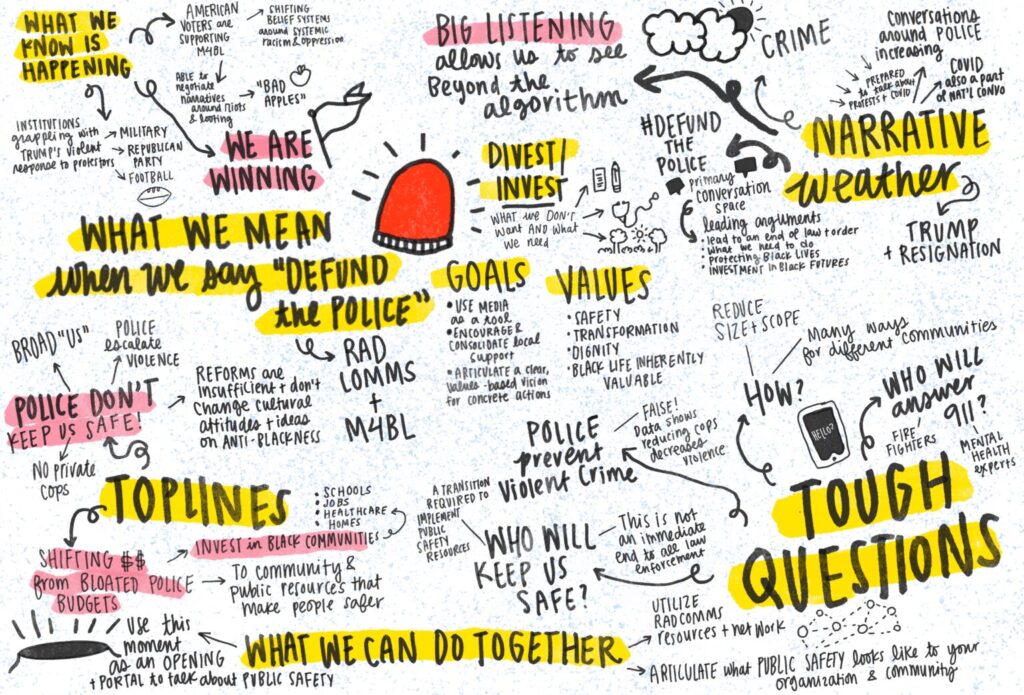 WHAT WE
KNOW IS
HAPPENING
AMERICAN
VOTERS are
SUPPORTING
M4BL
SHIFTING
BELIEF SYSTEMS
around SYSTEMIC
racism & oppression
ABLE to
negotiate
narratives
around riots
& looting
"BAD
APPLES"
INSTITUTIONS
grappling with
TRUMP'S violent
response to protestors
MILITARY
REPUBLICAN
PARTY
FOOTBALL
WE ARE
WINNING
BIG LISTENING
allows us to see
Beyond the
algorithm
CRIME
Conversations
around POLICE
increasing
PREPARED
to talk about
PROTESTS + COVID
COVID
also a part
of NAT'L CONVO
NARRATIVE
weather
#DEFUND
THE
POLICE
primary
conversation
space
leading arguments
• lead to an end of law + order
• what we need to do
• protecting Black LIVES
• INVESTMENT in Black FUTURES
TRUMP
+ RESIGNATION
DIVEST/
INVEST
WHAT we DON'T
want AND what
we need
WHAT WE MEAN
when we say "DEFUND
the POLICE"
RAD
COMMS
+
M4BL
GOALS
• USE MEDIA
as a tool
• ENCOURAGE &
CONSOLIDATE local
support
• ARTICULATE a clear,
values-based vision
for concrete actions
VALUES
• SAFETY
• TRANSFORMATION
• DIGNITY
• BLACK LIFE INHERENTLY
VALUABLE
BROAD "US"
POLICE
escalate
VIOLENCE
POLICE DON'T
KEEP US SAFE!
REFORMS are
insufficient + don't
Change cultural
attitudes + ideas
on ANTI-BLACKNESS
NO private
cops
TOPLINES
SHIFTING $$
from BLOATED POLICE
BUDGETS
INVEST in BLACK COMMUNITIES
• SCHOOLS
• JOBS
• HEALTHCARE
• HOMES
To community &
public resources that
make people safer
REDUCE
SIZE + SCOPE
Many ways
for different communities
HOW?
HELLO?
WHO WILL
answer
911?
FIRE
FIGHTERS
MENTAL
HEALTH
experts
POLICE
prevent
violent Crime
FALSE!
Data shows
reducing cops
decreases
violence
TOUGH
QUESTIONS
WHO WILL
KEEP US
SAFE?
A TRANSITION
REQUIRED to
IMPLEMENT
PUBLIC
SAFETY
RESOURCES
This is not
an immediate
end to all law
enforcement
WHAT WE CAN DO TOGETHER
USE this
moment
as an OPENING
+ PORTAL to talk about PUBLIC SAFETY
UTILIZE
RADCOMMS
resources + network
ARTICULATE what PUBLIC SAFETY looks like to your
organization & community